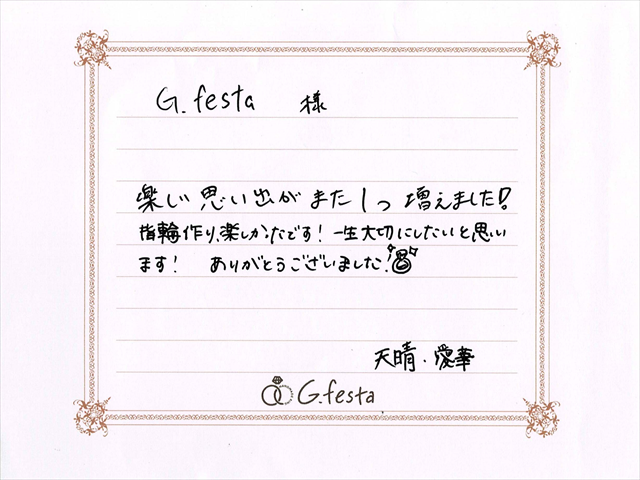 G.festa 様
楽しい思い出がまた1つ増えました!
指輪作り、楽しかったです!一生大切にしたいと思い
ます! ありがとうございました!
天晴・愛華
G.festa